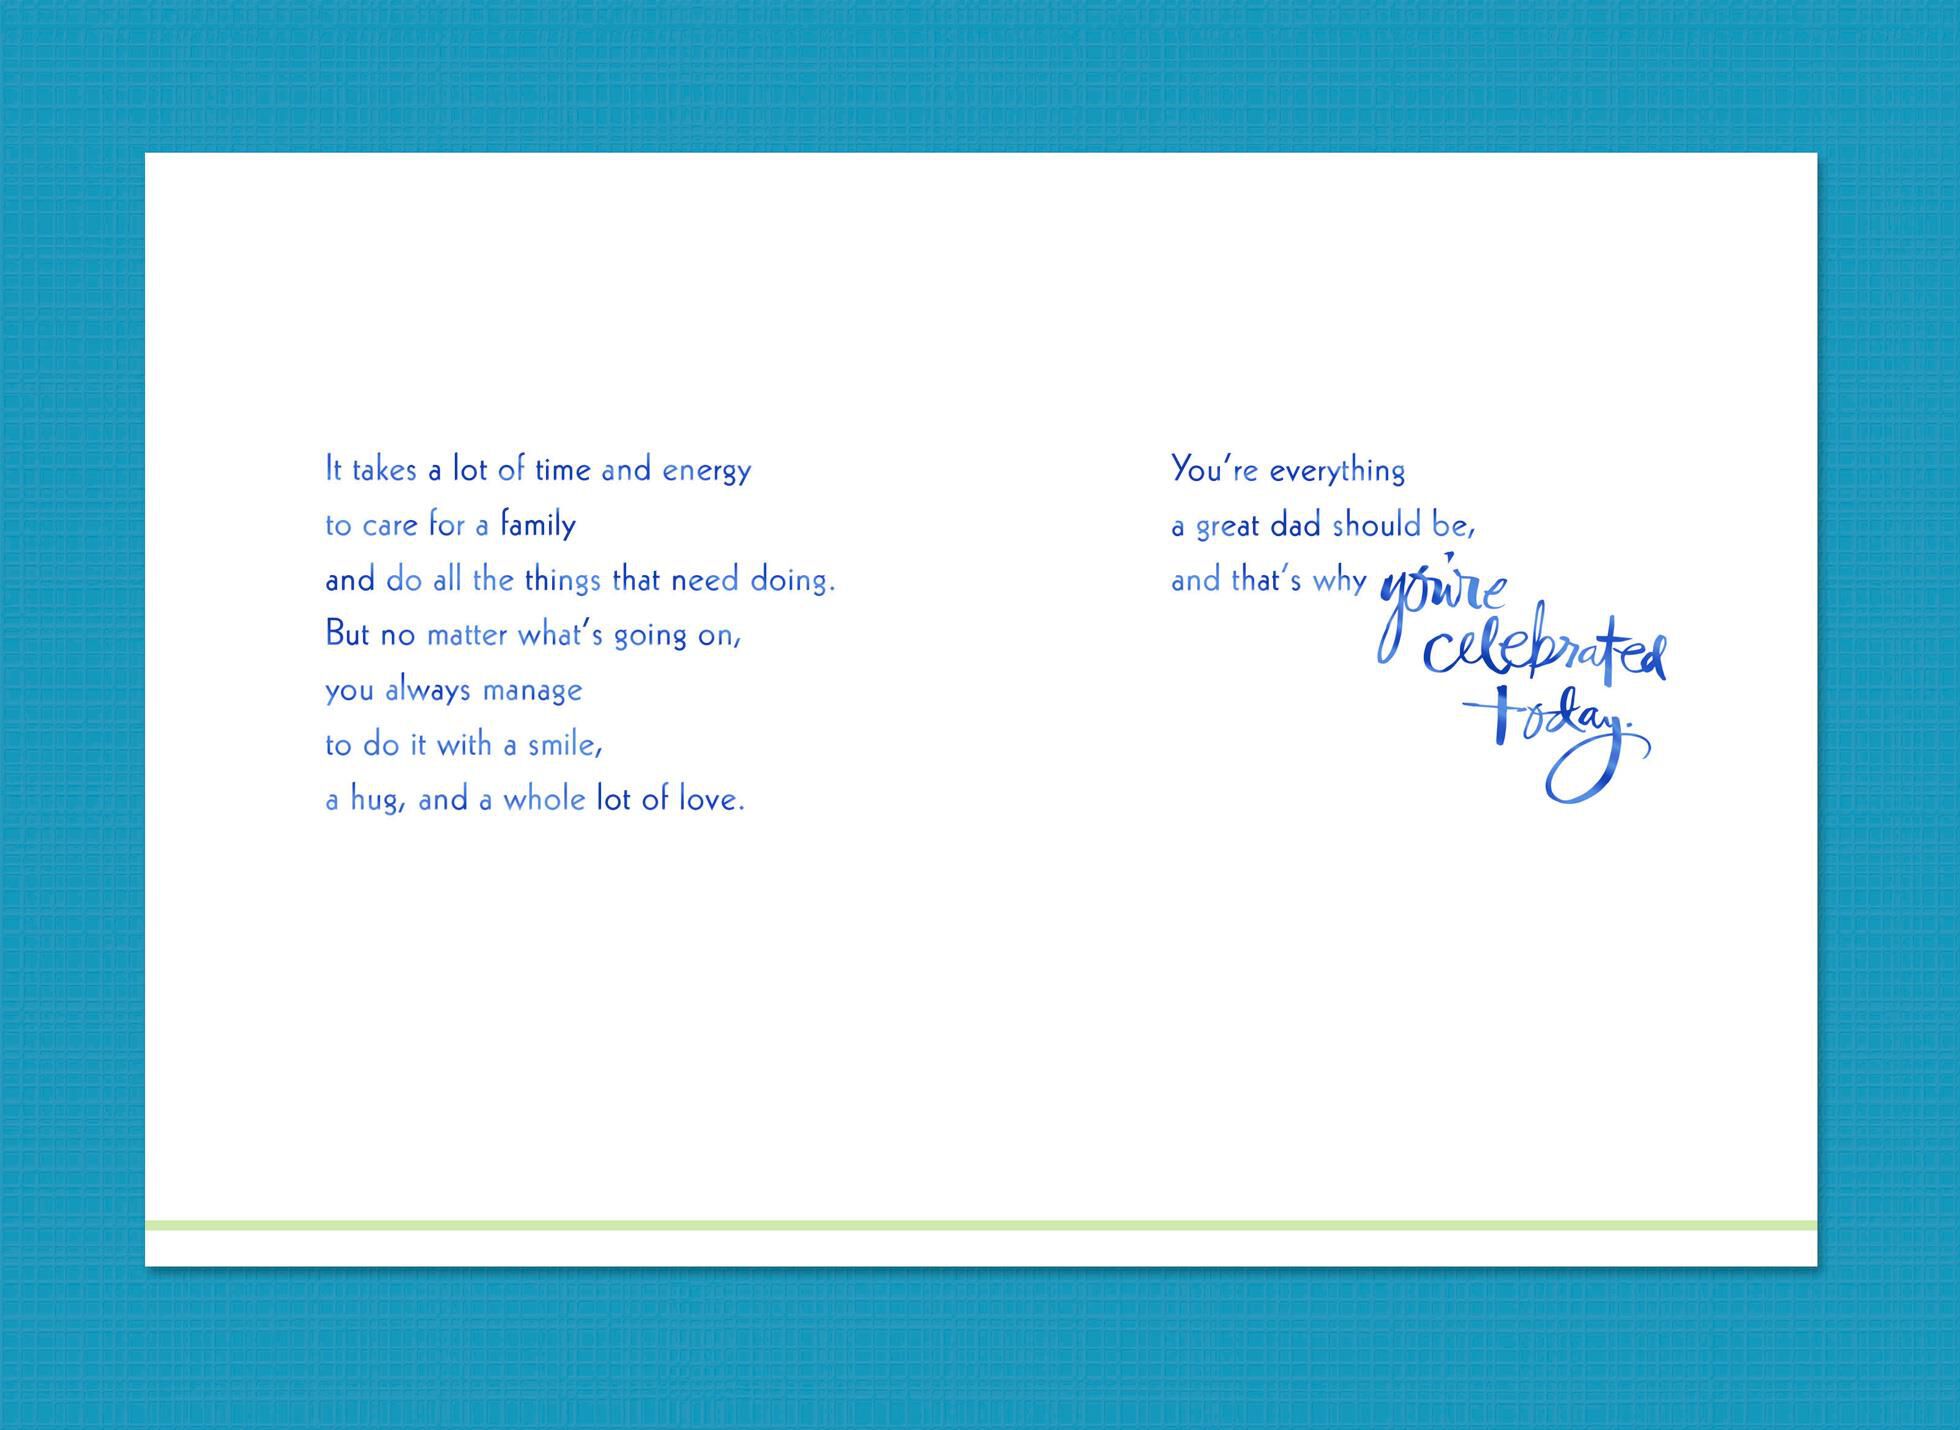 It takes a lot of time and energy
to care for a family
and do all the things that need doing.
But no matter what's going on,
you always manage
to do it with a smile,
a hug, and a whole lot of love.
You're everything
a great dad should be,
and that's why you're
celebrated
today.